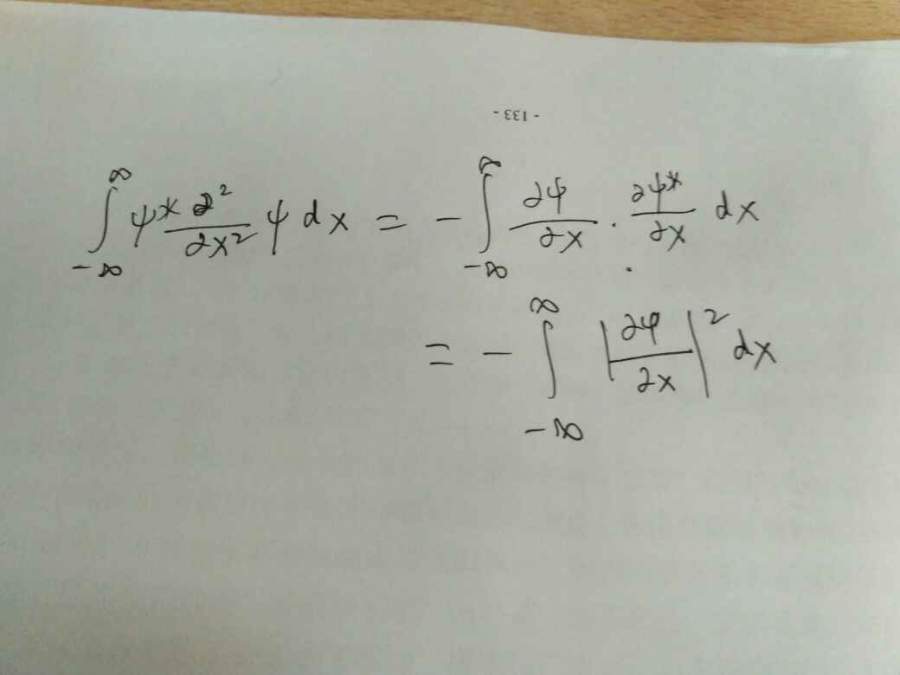 - 133 -
∫_{-∞}^{∞} ψ* ∂²/∂x² ψ dx = - ∫_{-∞}^{∞} ∂ψ/∂x · ∂ψ*/∂x dx
= - ∫_{-∞}^{∞} |∂ψ/∂x|² dx